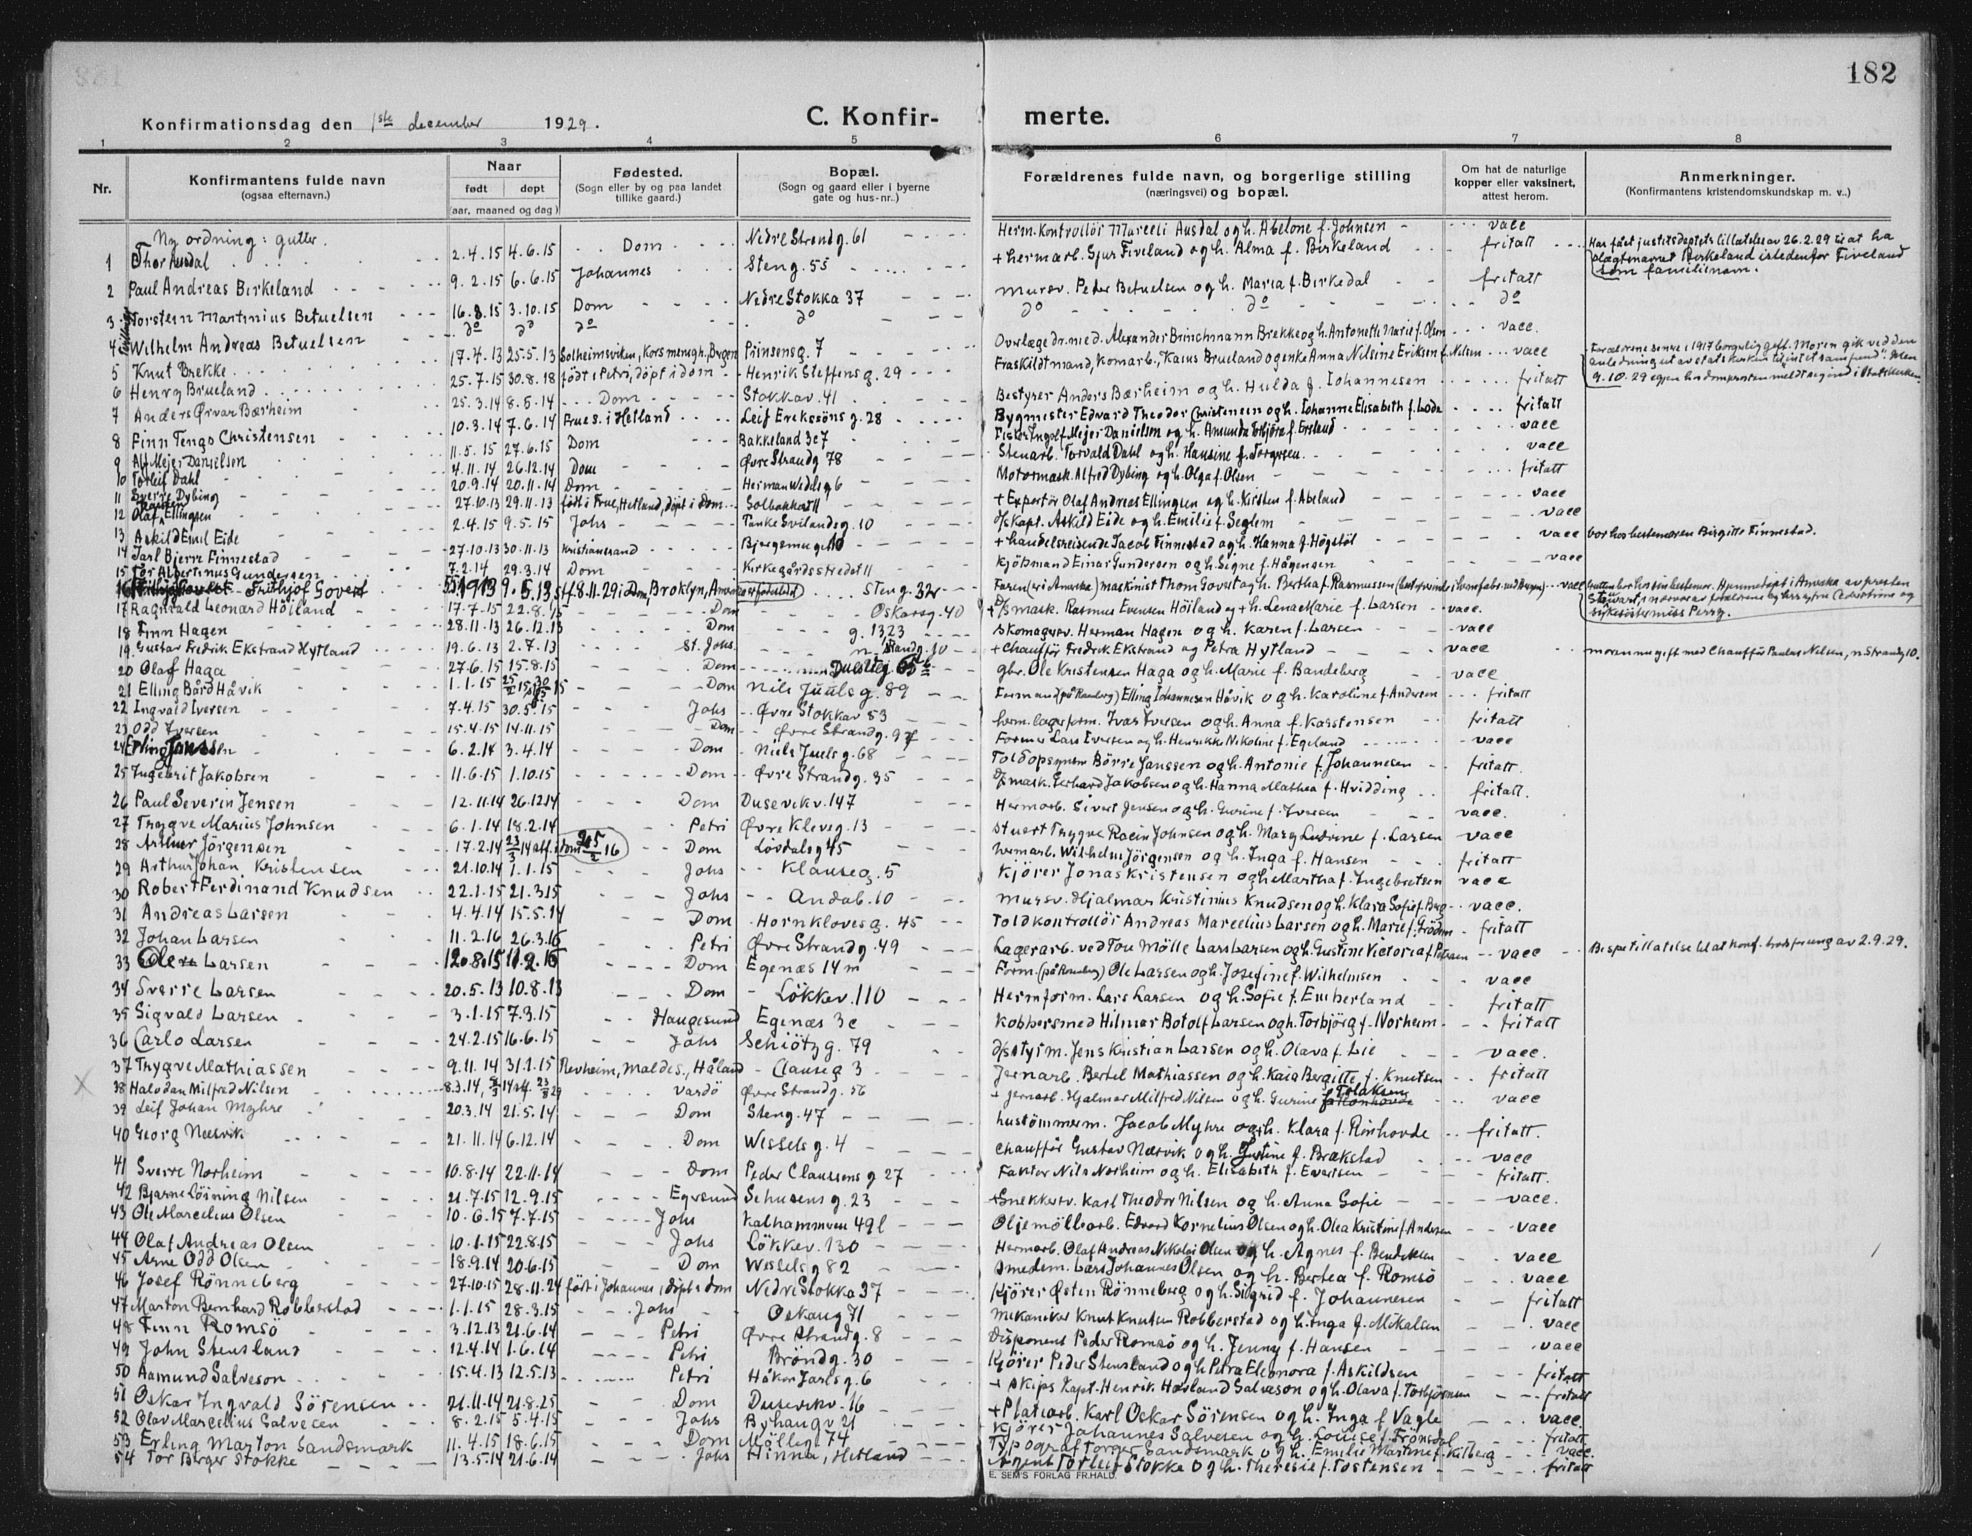 182
Konfirmationsdag den 1ste december 1929.
C. Konfirmerte.
1 2 3 4 5 6 7 8
Nr.
Konfirmantens fulde navn (ogsaa efternavn.)
Naar født døpt (aar, maaned og dag)
Fødested. (Sogn eller by og paa landet tillike gaard.)
Bopæl. (Sogn og gaard eller i byerne gate og hus-nr.)
Forældrenes fulde navn, og borgerlige stilling (næringsvei) og bopæl.
Om hat de naturlige kopper eller vaksinert, attest herom.
Anmerkninger. (Konfirmantens kristendomskundskap m. v.)
Ny ordning: gutter.
1 Thor Ausdal 2.4.15 4.6.15 Dom Nedre Strandg. 61 Herm. Kontrollör Marceli Ausdal og h. Abelone f. Johnsen vacc
2 Paul Andreas Birkeland 9.2.15 6.6.15 Johannes Steng. 55 + hermarb. Gjur Fiveland og h. Alma f. Birkeland fritatt Har fået justitsdeptets tillatelse av 26.2.29 til at ha slægtsnavnet Birkeland istedenfor Fiveland som familienavn.
3 Torstein Martinius Betuelsen 16.8.15 3.10.15 Dom Nedre Stokka 37 Mursv. Peder Betuelsen og h. Maria f. Birkedal fritatt
4 Wilhelm Andreas Betuelsen do do do do do do do
5 Knut Brekke 17.4.13 25.5.13 Solheimsviken, Kors menigh., Bergen Prinsensg. 7 Overlæge dr. med. Alexander Brinchmann Brekke og h. Antonette Marie f. Olsen vacc.
6 Henry Brueland 25.7.15 30.8.18 født i Petri, døpt i dom Henrik Steffensg. 29 Fraskildt mand, komarb. Kasus Brueland og enke Anna Nilsine Eriksen f. Nilsen vacc
7 Anders Ørvar Bærheim 25.3.14 8.5.14 Dom Stokkav. 41 Bestyrer Anders Bærheim og h. Hulda f. Johannesen fritatt
8 Finn Tengs Christensen 10.3.14 7.6.14 Frue s. i Hetland Leif Erekssöns g. 28 Bygmester Edvard Theodor Christensen og h. Johanne Elisabeth f. Lode fritatt
9 Alf Mejer Danielsen 11.5.15 27.6.15 Dom Bakkeland 3c7 Fisker Ingolf Mejer Danielsen og h. Amunda Torbjöra f. Ersland vacc
10 Torleif Dahl 4.11.14 26.12.14 Dom Øvre Strandg 78 Stenarb. Torvald Dahl og h. Hansine f. Torgersen vacc
11 Sverre Dybing 20.9.14 20.11.14 Dom Herman Wedelsg 6 Motormask. Alfred Dybing og h. Olga f. Olsen fritatt
12 Olaf Ellingsen 27.10.13 29.11.13 född i Frue, Hetland, döpt i Dom Solbakken 11 + Expeditör Olaf Andreas Ellingsen og h. Kirsten f. Abeland vacc
13 Askild Emil Eide 2.4.15 9.5.15 Johs Tanke Svilandsg. 10 d/s kapt. Askild Eide og h. Emilie f. Seglem vacc
14 Jarl Bjerre Finnestad 27.10.13 30.11.13 Kristiansand + handelsreisende Jacob Finnestad og h. Hanna f. Högstöl vacc bor hos bestemoren Birgitte Finnestad.
15 Tor Albertinus Gundersen 7.2.14 29.3.14 Dom Kirkegårdsstrædet 11 Kjöbmand Einar Gundersen og h. Signe f. Hågensen vacc
16 Frithjof Govert
17 Ragnvald Leonard Höiland 17.7.15 22.8.15 Dom Oskarsg. 40 + d/s mask. Rasmus Evensen Höiland og + h. Lena Marie f. Larsen vacc.
18 Finn Hagen 28.11.13 26.12.13 Dom g. 13 23 Skomagersv. Herman Hagen og h. Karen f. Larsen vacc
19 Gustav Fredrik Ekstrand Hytland 19.6.13 2.7.13 St. Johs. n. Strandg. 10 + Chauffør Fredrik Ekstrand og Petra Hytland vacc moren nu gift med Chauffør Paulus Nilsen, n. Strandg 10.
20 Olaf Haga 27.6.15 15.8.15 Dom gbr. Ole Kristensen Haga og h. Marie f. Bandeberg vacc
21 Elling Bård Håvik 1.1.15 Dom Nils Juulsg. 89 Formand (på Rosenberg) Elling Johannesen Håvik og h. Karoline f. Andersen fritatt
22 Ingvald Iversen 7.4.15 30.5.15 Johs Øvre Stokkav 53 herm. lagerform. Ivar Iversen og h. Anna f. Karstensen fritatt
23 Odd Iversen 15.4.15 14.11.15 Dom Øvre Strandg. 97 Former Lars Iversen og h. Henrikke Nikoline f. Egeland vacc
24 Erling Janssen 6.2.14 3.4.14 Dom Niels Juelsg. 68 Toldopsynsm Börre Janssen og h. Antonie f. Johannesen fritatt.
25 Ingebrit Jakobsen 11.6.15 1.10.15 Dom Øvre Strandg. 35 d/s mask. Gerhard Jakobsen og h. Hanna Mathea f. Hvidding fritatt.
26 Paul Severin Jensen 12.11.14 26.12.14 Dom Dusevikv. 147 Hermarb. Sivert Jensen og h. Gurine f. Iversen vacc.
27 Trygve Marius Johnsen 6.1.14 18.2.14 Petri Øvre Kleveg. 13 Stuert Trygve Racin Johnsen og h. Mary Ludvine f. Larsen vacc
28 Arthur Jörgensen 17.2.14 Dom Lövdalsg 45 hermarb. Wilhelm Jörgensen og h. Inga f. Hansen fritatt
29 Arthur Johan Kristensen 21.10.14 1.1.15 Johs Klauseg. 5 Kjörer Jonas Kristensen og h. Martha f. Ingebretsen vacc
30 Robert Ferdinand Knudsen 22.1.15 21.3.15 Johs Andab. 10 Mursv. Hjalmar Kristinius Knudsen og h. Klara Sofie f. Berg vacc.
31 Andreas Larsen 4.4.14 15.5.14 Dom Hornklovesg. 45 Toldkontrollör Andreas Marcelius Larsen og h. Marie f. Grödem fritatt
32 Johan Larsen 11.2.16 26.3.16 Petri Øvre Strandg. 49 Lagerarb. ved Tou Mölle Lars Larsen og h. Gustine Victoria f. Petersen vacc Bispetillatelse til at konf. trods for ung av 2.9.29.
33 Ole Larsen Dom Egenæs 14 m Form. (på Rosenberg) Ole Larsen og h. Josefine f. Wilhelmsen vacc
34 Sverre Larsen 20.5.13 10.8.13 Dom Lökkev. 110 Hermform. Lars Larsen og h. Sofie f. Emberland fritatt
35 Sigvald Larsen 3.1.15 7.3.15 Haugesund Egenæs 3c Kobbersmed Hilmar Botolf Larsen og h. Torbjörg f. Norheim fritatt
36 Carlo Larsen 24.2.15 16.6.15 Johs Schiötzg. 79 d/s styrm. Jens Kristian Larsen og h. Olava f. Lie vacc.
37 Trygve Mathiassen 9.11.14 31.1.15 Revheim, Maldes, Håland Clauseg 3 Jernarb. Bertel Mathiassen og h. Kaia Bergitte f. Knutsen fritatt
X 38 Halvdan Milfred Nilsen 8.3.14 Vardö Øvre Strandg. 56 + Jernarb. Hjalmar Milfred Nilsen og h. Gurine f. Tolaksen vacc
39 Leif Johan Myhre 20.3.14 21.5.14 Dom Steng. 47 hustömmerm. Jacob Myhre og h. Klara f. Rönhovde fritatt.
40 Georg Næsvik 21.11.14 6.12.14 Dom Wesselsg. 4 Chauffør Gustav Næsvik og h. Justine f. Brakstad vacc
41 Sverre Norheim 10.8.14 22.11.14 Dom Peder Claussensg 27 Faktor Nils Norheim og h. Elisabeth f. Evertsen fritatt.
42 Bjarne Löining Nilsen 21.7.15 12.9.15 Egersund Schusensg. 23 + Snekkersv. Karl Theodor Nilsen og h. Anna Sofie vacc.
43 Ole Marcelius Olsen 10.6.15 7.7.15 Johs Kalhammven 49l Oljemöllearb. Edvard Kornelius Olsen og h. Olea Kristine f. Andersen vacc
44 Olaf Andreas Olsen 10.1.15 22.8.15 Johs Lökkev. 130 Hermarb. Olaf Andreas Nikolai Olsen og h. Agnes f. Bendiksen vacc
45 Arne Odd Olsen 18.9.14 20.6.15 Dom Wesselsg 82 Smedem. Lars Johannes Olsen og h. Bertea f. Romsö vacc
46 Josef Rönneberg 27.10.15 28.11.24 født i Johannes, døpt i dom Nedre Stokka 37 Kjörer Østen Rönneberg og h. Sigrid f. Johannesen fritatt
47 Marton Bernhard Robberstad 1.1.15 28.3.15 Johs Oskarsg 71 Mekaniker Knut Knutsen Robberstad og h. Inga f. Mikalsen vacc
48 Finn Romsö 3.12.13 21.6.14 Petri Øvre Strandg. 8 Disponent Peder Romsö og h. Jenny f. Hansen vacc
49 John Stensland 12.4.14 1.6.14 Petri Bröndg. 30 Kjörer Peder Stensland og h. Petra Eleonora f. Askildsen fritatt
50 Aamund Salveson 15.4.13 12.5.13 Petri Håkon Jarlsg. 6 + Skips Kapt. Henrik Havland Salveson og h. Olava f. Torbjörnsen fritatt
51 Oskar Ingvald Sörensen 21.11.14 21.8.25 Dom Dusevikv. 16 + Platearb. Karl Oskar Sörensen og h. Inga f. Vagle vacc.
52 Olav Marcelius Salvesen 8.2.15 5.4.15 Johs Byhaugv 21 Kjörer Johannes Salvesen og h. Louise f. Frönsdal fritatt
53 Erling Marton Sandsmark 11.4.15 18.6.15 Dom Mölleg. 74 Typograf Torger Sandsmark og h. Emilie Martine f. Kilberg vacc.
54 Tor Birger Stokke 13.5.14 21.6.14 Johs Hinna, Hetland Agent Torleif Stokke og h. Theresie f. Tostensen fritatt
E. SEM'S FORLAG FR.HALD.